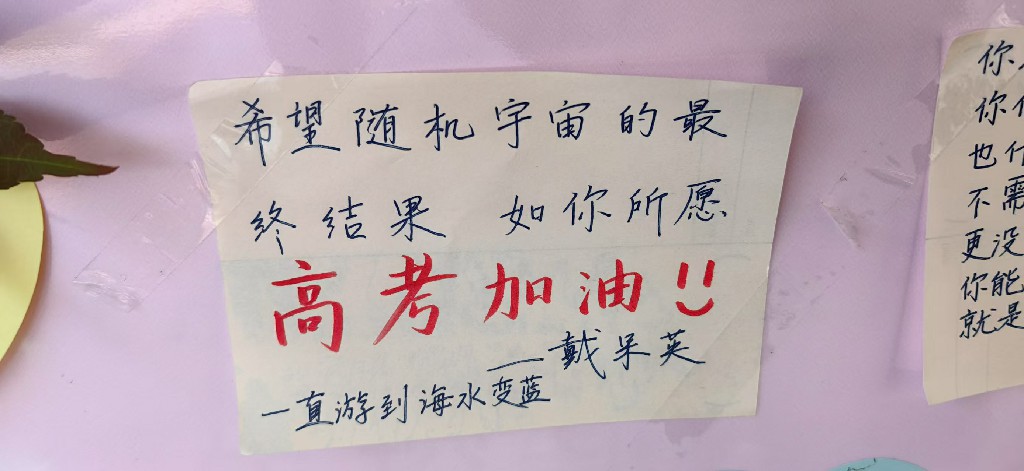 希望随机宇宙的最
终结果 如你所愿
高考加油!!
——戴呆英
一直游到海水变蓝
你
你
也什
不需
更没
你能
就是